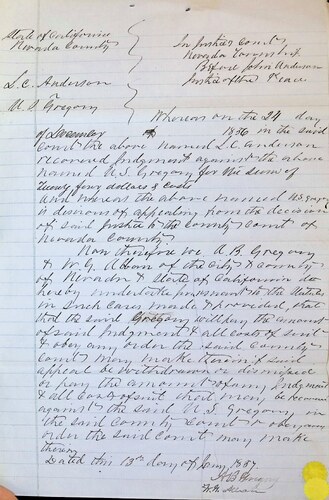 State of California
Nevada County
In Justices Court
Nevada Township
Before John Anderson
Justice of the Peace
L.C. Anderson
U.S. Gregory
Whereas on the 24 day
of December 1856 in the said
Court the above named L.C. Anderson
recovered Judgement against the above
named U.S. Gregory for the sum of
Twenty four dollars & costs
and whereas the above named U.S. Gregory
is desirous of appealing from the decision
of said Justice to the County Court of
Nevada County
Now therefore we A.B. Gregory
& W.G. Alban of the City & County
of Nevada & State of California do
hereby undertake pursuant to the Statute
in Such cases made & provided, that
that the said Gregory will pay the amount
of said Judgment & all costs of suit
& obey any order the said County
Court may make therein if said
appeal be withdrawn or dismissed
or pay the amount of any Judgment
& all Costs of suit that may be recovered
against the said U.S. Gregory in
the said County Court & obey any
order the said Court may make
therein
Dated this 13th day of Jany 1857
A B Gregory